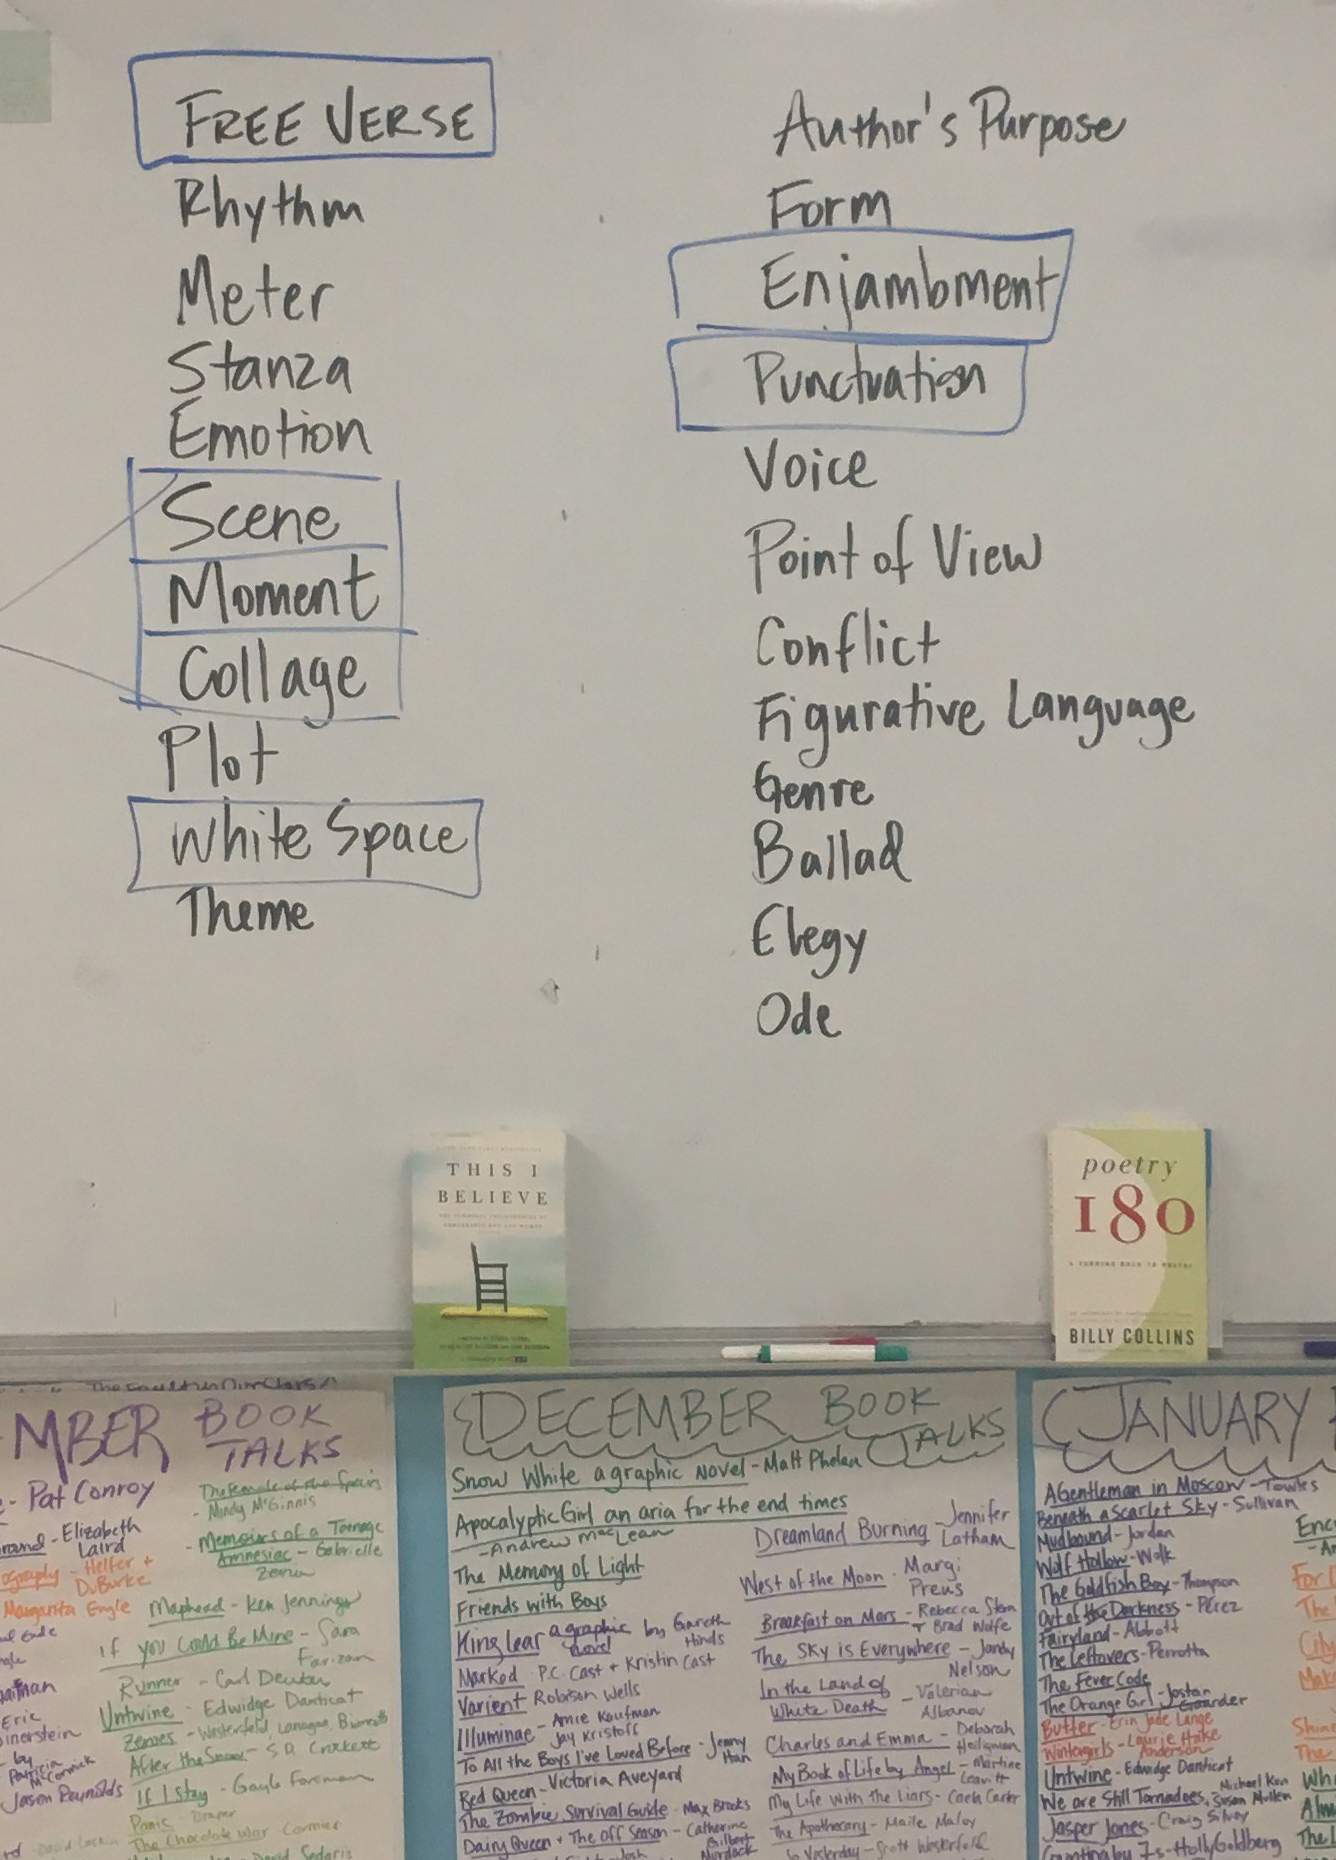 FREE VERSE
Rhythm
Meter
Stanza
Emotion
Scene
Moment
Collage
Plot
White Space
Theme
Author's Purpose
Form
Enjambment
Punctuation
Voice
Point of View
Conflict
Figurative Language
Genre
Ballad
Elegy
Ode
THIS I
BELIEVE
poetry
180
BILLY COLLINS
MBER BOOK
TALKS
- Pat Conroy
- Elizabeth
Laird
- Helfer +
DuBurke
Margarita Engle
Eric
by
Patricia
McCormick
Jason Reynolds
- Mindy McGinnis
Memoirs of a Teenage
Amnesiac - Gabrielle
Zevin
Maphead - Ken Jennings
If you Could Be Mine - Sara
Farizan
Runner - Carl Deuker
Untwine - Edwidge Danticat
Zeroes - Westerfeld, Lanagan,
After the Snow - S.D. Crockett
If I Stay - Gayle Foreman
Panic - Draper
The Chocolate War Cormier
David Sedaris
DECEMBER BOOK
TALKS
Snow White a graphic Novel - Matt Phelan
Apocalyptic Girl an aria for the end times
- Andrew MacLean
The Memory of Light
Friends with Boys
King Lear a graphic novel by Gareth
Hinds
Marked P.C. Cast + Kristin Cast
Varient Robison Wells
Illuminae - Amie Kaufman
Jay Kristoff
To All the Boys I've Loved Before - Jenny
Han
Red Queen - Victoria Aveyard
The Zombie Survival Guide - Max Brooks
Dairy Queen + The Off Season - Catherine
Gilbert
Murdock
Dreamland Burning - Jennifer
Latham
West of the Moon - Margi
Preus
Breakfast on Mars - Rebecca Stern
+ Brad Wolfe
The Sky is Everywhere - Jandy
Nelson
In the Land of
White Death - Valerian
Albanov
Charles and Emma - Deborah
Heiligman
My Book of Life by Angel - Martine
Leavitt
My Life with the Liars - Caela Carter
The Apothecary - Maile Meloy
So Yesterday - Scott Westerfeld
JANUARY
A Gentleman in Moscow - Towles
Beneath a Scarlet Sky - Sullivan
Mudbound - Jordan
Wolf Hollow - Wolk
The Goldfish Boy - Thompson
Out of the Darkness - Pérez
Fairyland - Abbott
The Leftovers - Perrotta
The Fever Code
The Orange Girl - Jostan Gaarder
Butter - Erin Jade Lange
Wintergirls - Laurie Halse
Anderson
Untwine - Edwidge Danticat
We are Still Tornadoes, Michael Kun
Susan Mullen
Jasper Jones - Craig Silvey
Counting by 7s - Holly Goldberg